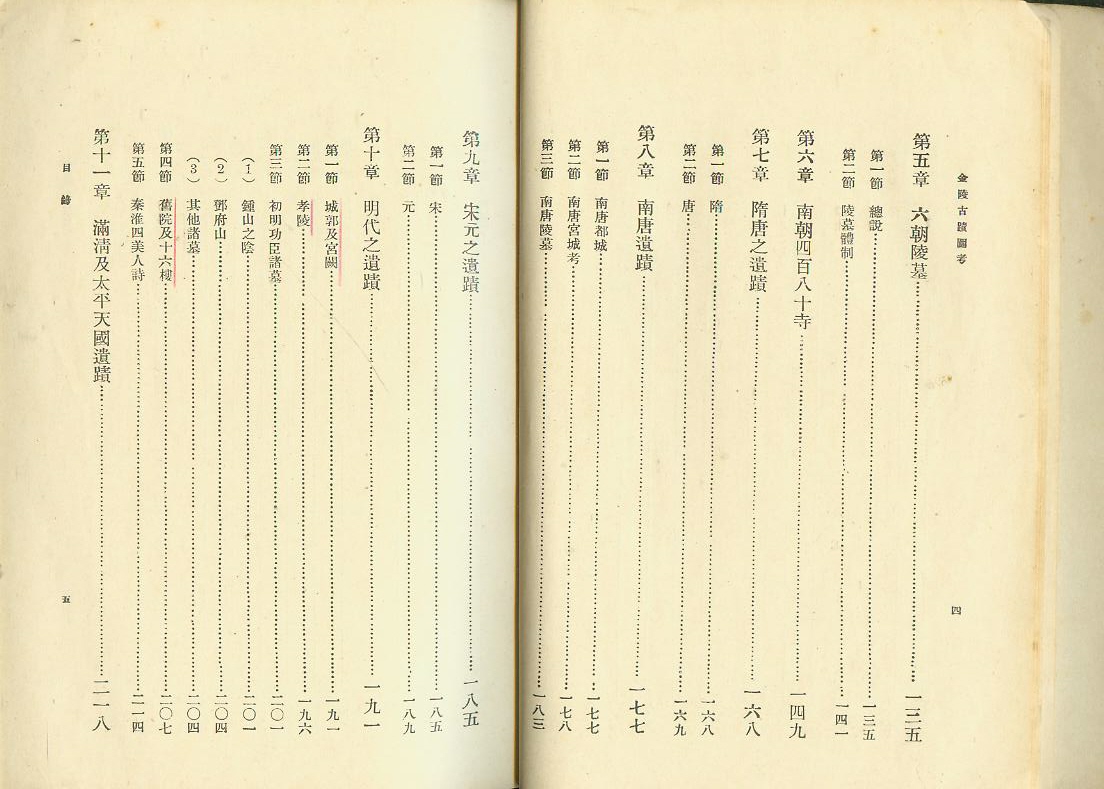 金陵古蹟圖考
四
第五章 六朝陵墓 一三五
第一節 總說 一三五
第二節 陵墓體制 一四一
第六章 南朝四百八十寺 一四九
第七章 隋唐之遺蹟 一六八
第一節 隋 一六八
第二節 唐 一六九
第八章 南唐遺蹟 一七七
第一節 南唐都城 一七七
第二節 南唐宮城考 一七八
第三節 南唐陵墓 一八三
第九章 宋元之遺蹟 一八五
第一節 宋 一八五
第二節 元 一八九
第十章 明代之遺蹟 一九一
第一節 城郭及宮闕 一九一
第二節 孝陵 一九六
第三節 初明功臣諸墓 二〇一
（1） 鍾山之陰 二〇一
（2） 鄧府山 二〇四
（3） 其他諸墓 二〇四
第四節 舊院及十六樓 二〇七
第五節 秦淮四美人詩 二一四
第十一章 滿清及太平天國遺蹟 二一八
目錄
五